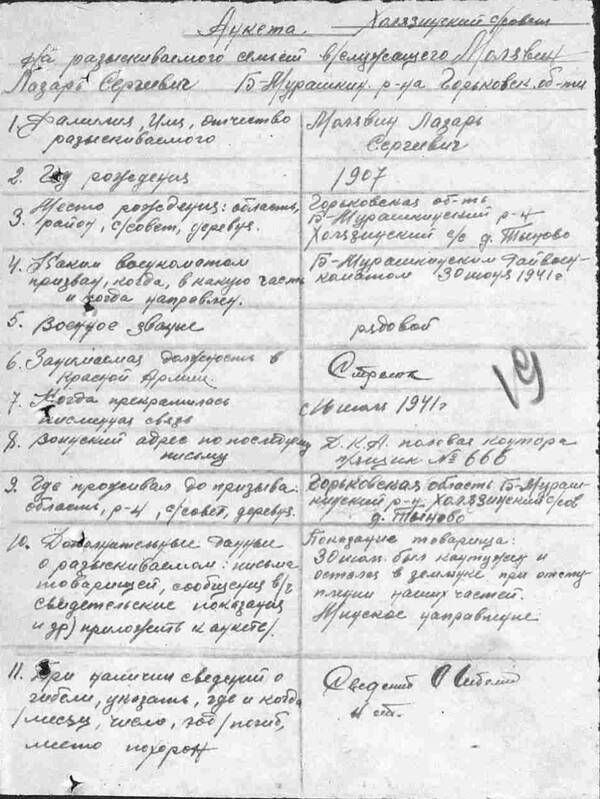 Анкета. Холязинский с/совет
на разыскиваемого семьей в/служащего Молявин
Лазарь Сергеевич Б-Мурашкин. р-на Горьковск. об-ти
1. Фамилия, Имя, отчество
разыскиваемого
Молявин Лазарь
Сергеевич
2. Год рождения
1907
3. Место рождения: область,
район, с/совет, деревня.
Горьковская об-ть
Б-Мурашкинский р-н
Холязинский с/с д. Тыново
4. Каким военкоматом
призван, когда, в какую часть
и когда направлен.
Б-Мурашкинским Райвоен-
коматом 1941 г.
5. Военное звание
рядовой
6. Занимаемая должность в
Красной Армии
Стрелок
7. Когда прекратилась
письменная связь
1941 г
8. Воинский адрес по последнему
письму
Д.К.А. полевая контора
п/ящик № 666
9. Где проживал до призыва:
область, р-н, с/совет, деревня.
Горьковская область Б-Мураш-
кинский р-н Холязинский с/сов
д. Тыново
10. Дополнительные данные
о разыскиваемом: письма
товарищей, сообщения в/ч
свидетельские показания
и др) приложить к анкете/.
Показание товарища:
был контужен и
остался в землянке при отсту-
плении наших частей.
Минское направление
11. При наличии сведений о
гибели, указать, где и когда
/месяц, число, год/ погиб,
место похорон
Сведений о гибели
19